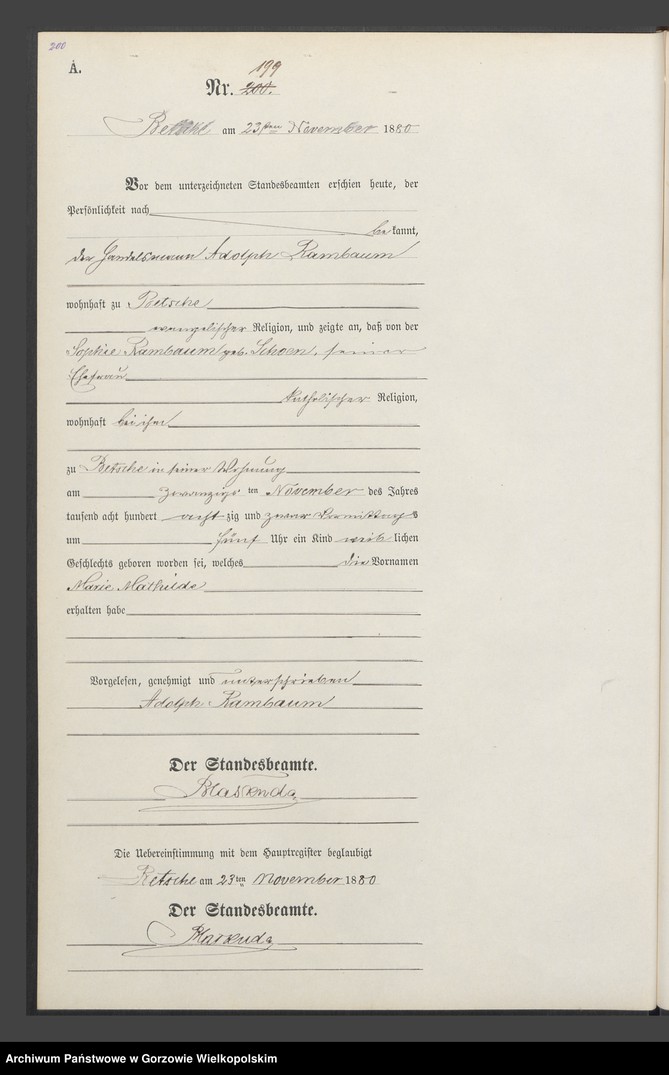 200
A.
199
Nr. 200.
Betsche am 23sten November 1880
Vor dem unterzeichneten Standesbeamten erschien heute, der
Persönlichkeit nach
be kannt,
der Handelsmann Adolph Rambaum
wohnhaft zu Betsche
evangelischer Religion, und zeigte an, daß von der
Sophie Rambaum geb. Schoen, seiner
Ehefrau
katholischer Religion,
wohnhaft bei ihm
zu Betsche in seiner Wohnung
am zwanzigs ten November des Jahres
tausend acht hundert acht zig und zwar Vormittags
um fünf Uhr ein Kind weib lichen
Geschlechts geboren worden sei, welches die Vornamen
Marie Mathilde
erhalten habe
Vorgelesen, genehmigt und unterschrieben
Adolph Rambaum
Der Standesbeamte.
Die Uebereinstimmung mit dem Hauptregister beglaubigt
Betsche am 23ten November 1880
Der Standesbeamte.
Archiwum Państwowe w Gorzowie Wielkopolskim